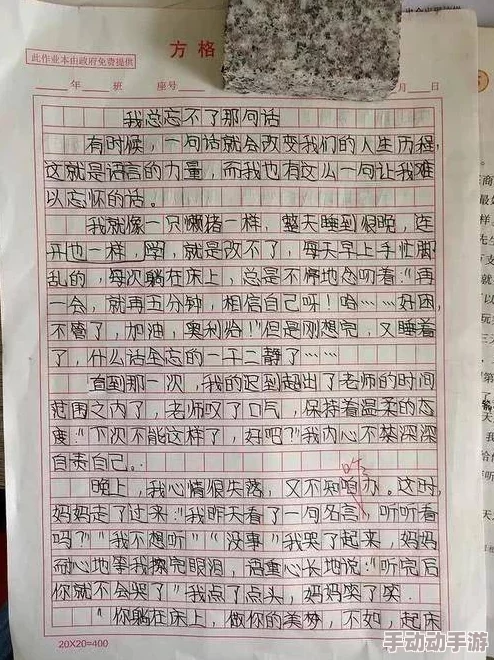 方格
此作业本由政府免费提供
年 班 座号 月 日
我总忘不了那句话
有时候，一句话就会改变我们的人生历程，
这就是语言的力量，而我也有这么一句让我难
以忘怀的话。
我就像一只懒猪一样，整天睡到很晚，连
开也一样，唷，就是改不了，每天早上手忙脚
乱的，每次躺在床上，总是不停地念叨着："再
一会，就再五分钟，相信自己呀！哈……好困，
不管了，加油，奥利给！"但是刚想完，又睡着
了，什么话全忘的一干二静了……
直到那一次，我的迟到超出了老师的时间
范围之内了，老师叹了口气，保持着温柔的态
度"下次不能这样了，好吧？"我内心不禁深深
自责自己。
晚上，我心情很失落，又不知咱办。这时，
咋
妈妈走了过来："我昨天看了一句名言，听听看
吗？""我不想听""没事"我哭了起来，妈妈
耐心地等我擦完眼泪，语重心长地说："听完后
你就不会哭了"我点了点头，妈妈笑了笑。
"你躺在床上，做你的美梦，不如，起床
20×20=400
手动动手游